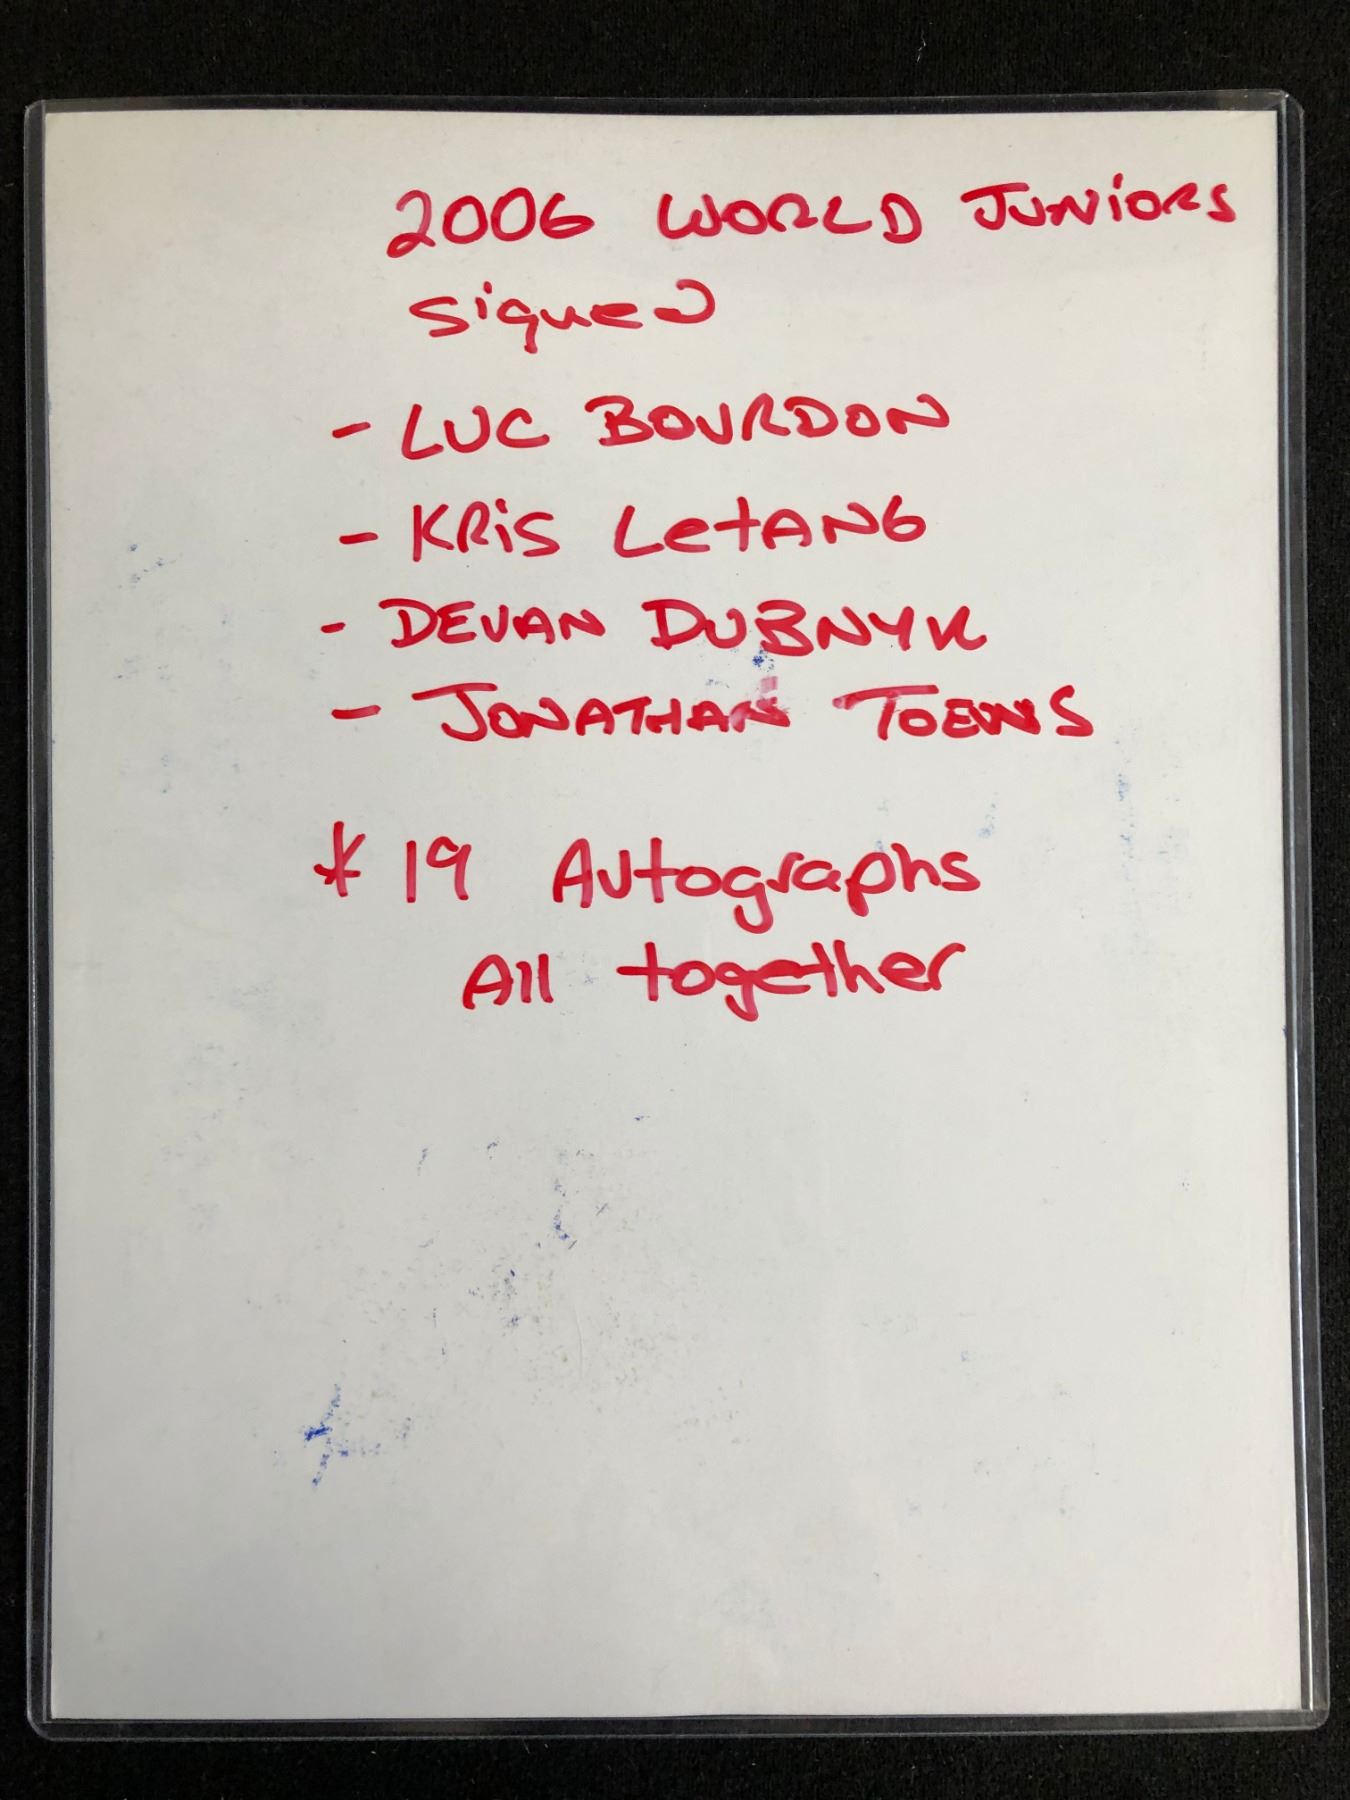 2006 WORLD JUNiORS
signed
- LUC BOURDON
- KRiS LetANG
- DEVAN DUBNYK
- JONATHAN TOEWS
* 19 Autographs
All together